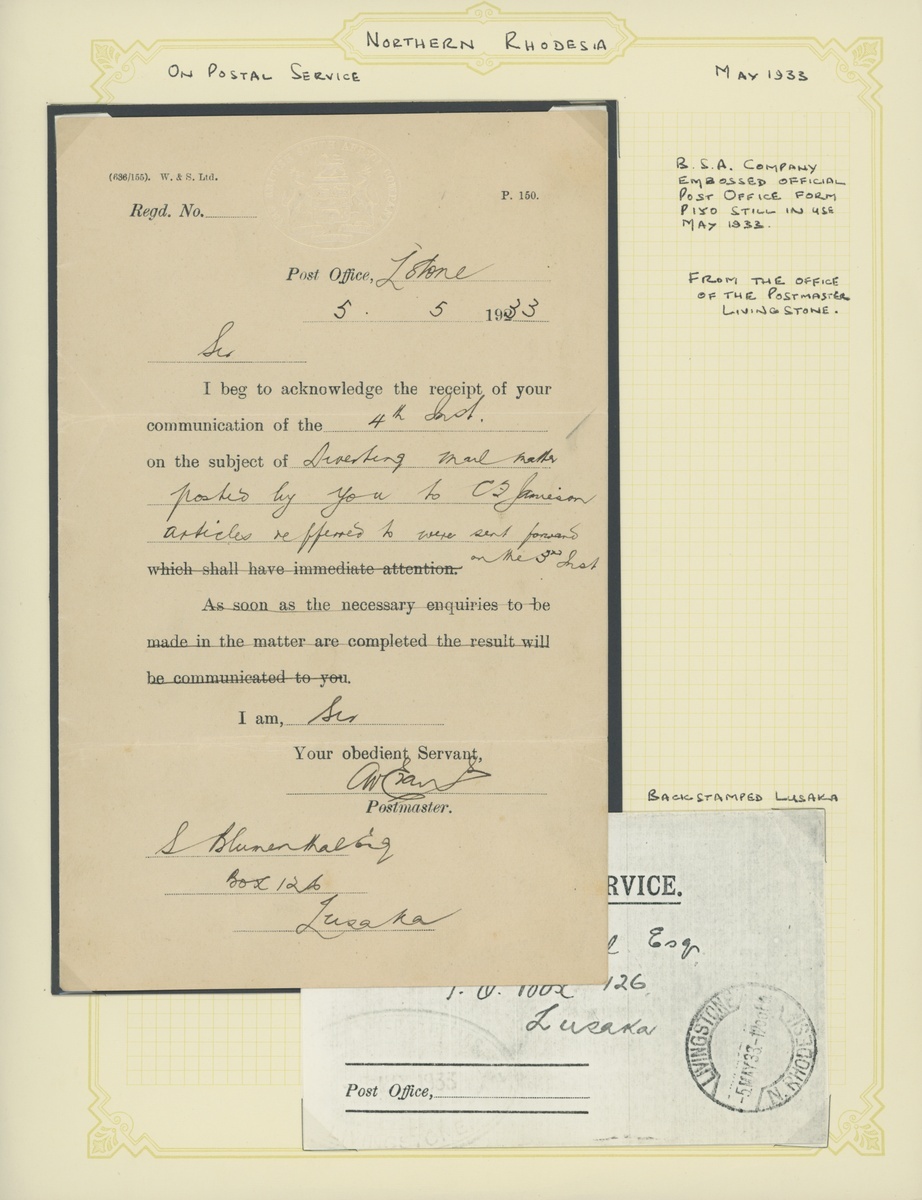 NORTHERN RHODESIA
ON POSTAL SERVICE
MAY 1933
B.S.A. COMPANY
EMBOSSED OFFICIAL
POST OFFICE FORM
P150 STILL IN USE
MAY 1933.
FROM THE OFFICE
OF THE POSTMASTER
LIVINGSTONE.
(636/155). W. & S. Ltd.
P. 150.
Regd. No.
Post Office, Lstone
5. 5 1933
Sir
I beg to acknowledge the receipt of your
communication of the 4th Inst.
on the subject of Diverting mail matter
posted by you to C S Jamieson
articles refferred to were sent forward
on the 3rd Inst
which shall have immediate attention.
As soon as the necessary enquiries to be
made in the matter are completed the result will
be communicated to you.
I am, Sir
Your obedient Servant,
Postmaster.
S Blumenthal Esq
Box 126
Lusaka
BACKSTAMPED LUSAKA
RVICE.
l Esq
P. O. Box 126
Lusaka
Post Office,
LIVINGSTON
-5 MAY 33
N. RHODESI